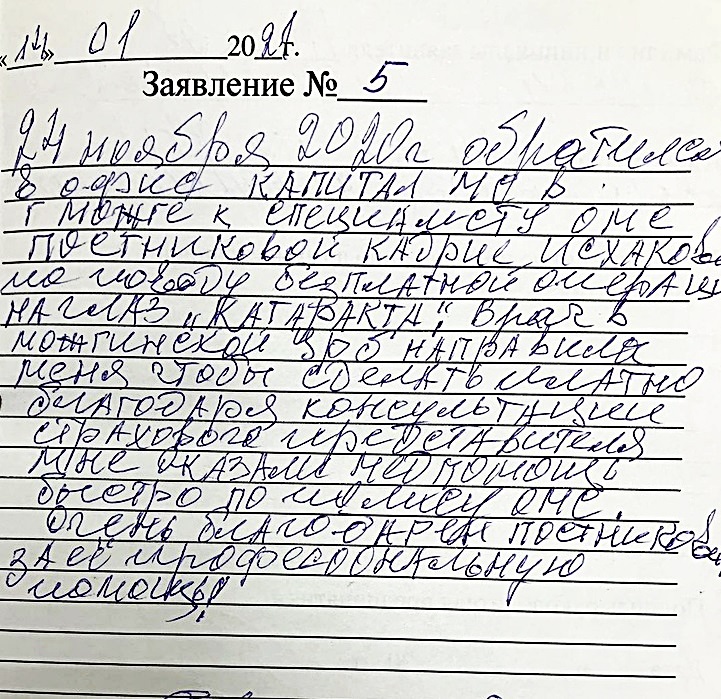 «14» 01 2021г.
Заявление № 5
24 ноября 2020г обратился
в офис КАПИТАЛ МС в
г можге к специалисту омс
постниковой кадрие исхаковн
по поводу безплатной операц
на глаз „КАТАРАКТА", врач в
можгинской ЦРБ направила
меня чтобы сделать платно
благодаря консультации
страхового представителя
мне оказали медпомощь
быстро по полису омс.
очень благодарен постников
за её професиональную
помощь!